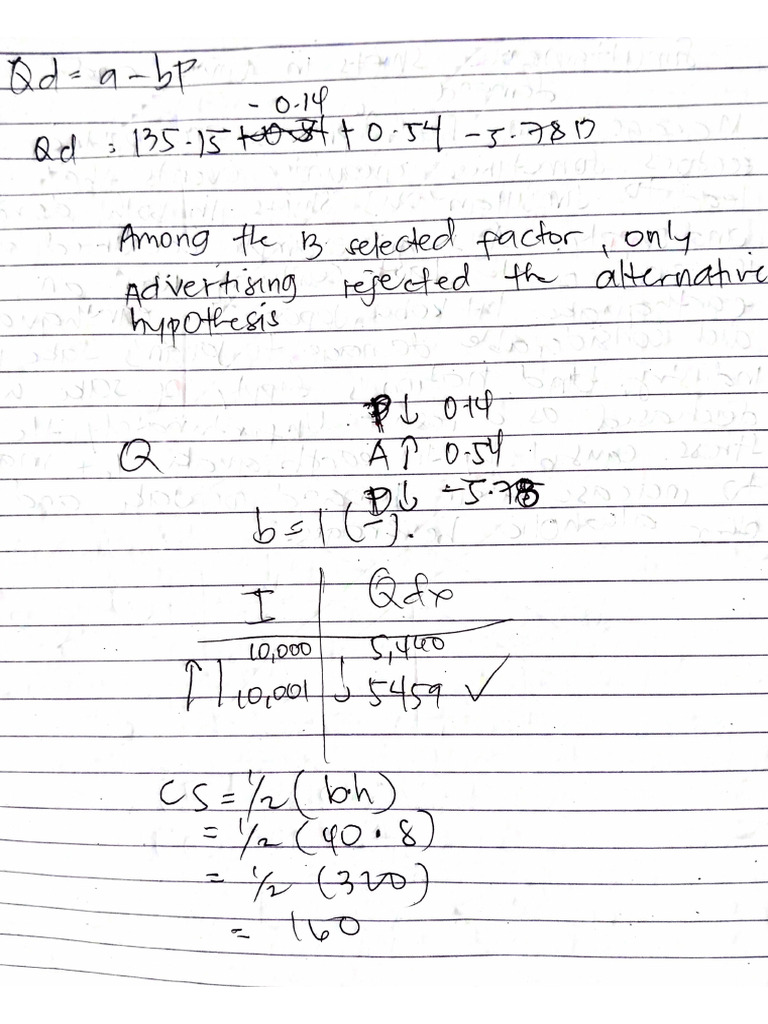 Qd = a - bP
- 0.14
Qd = 135.15 + 0.54 - 5.78P
Among the 13 selected factor, only
Advertising rejected the alternative
hypothesis
P ↓ 0.14
Q A ↑ 0.54
P ↓ -5.78
b = 1 (-).
I | Qdx
10,000 | 5,460
↑ 10,001 | ↓ 5459 ✓
CS = 1/2 (b·h)
= 1/2 (40 · 8)
= 1/2 (320)
= 160